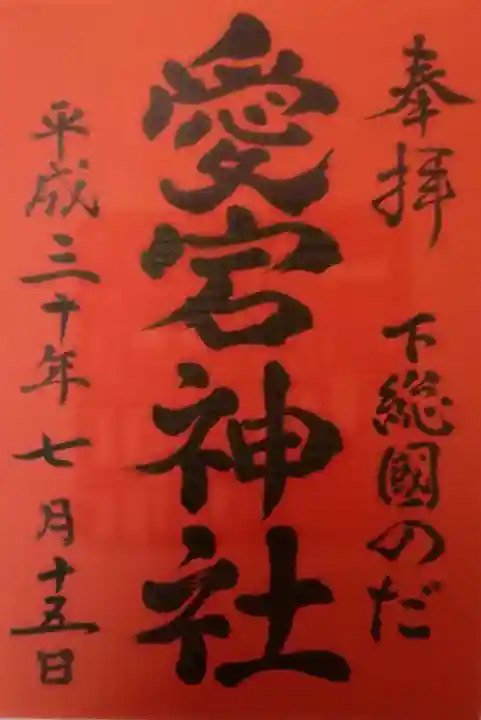 奉拝 下総國のだ
愛宕神社
平成三十年七月十五日